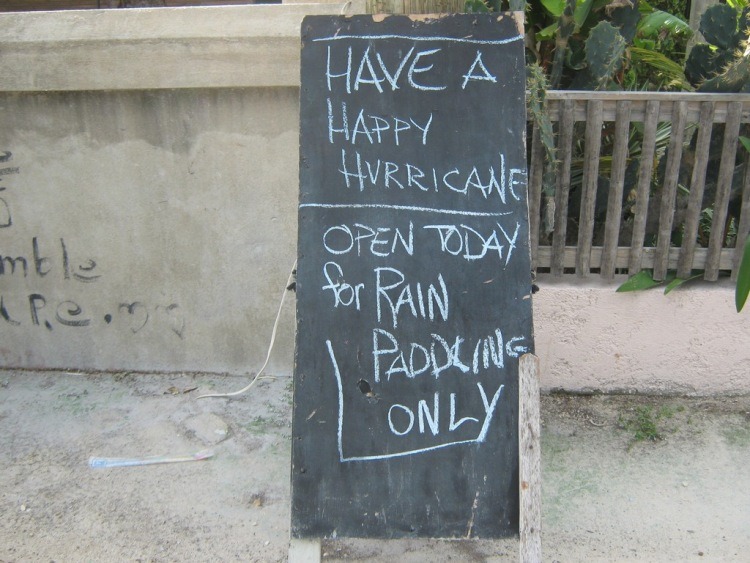 HAVE A
HAPPY
HURRICANE
OPEN TODAY
for RAIN
PADDLING
ONLY
mble